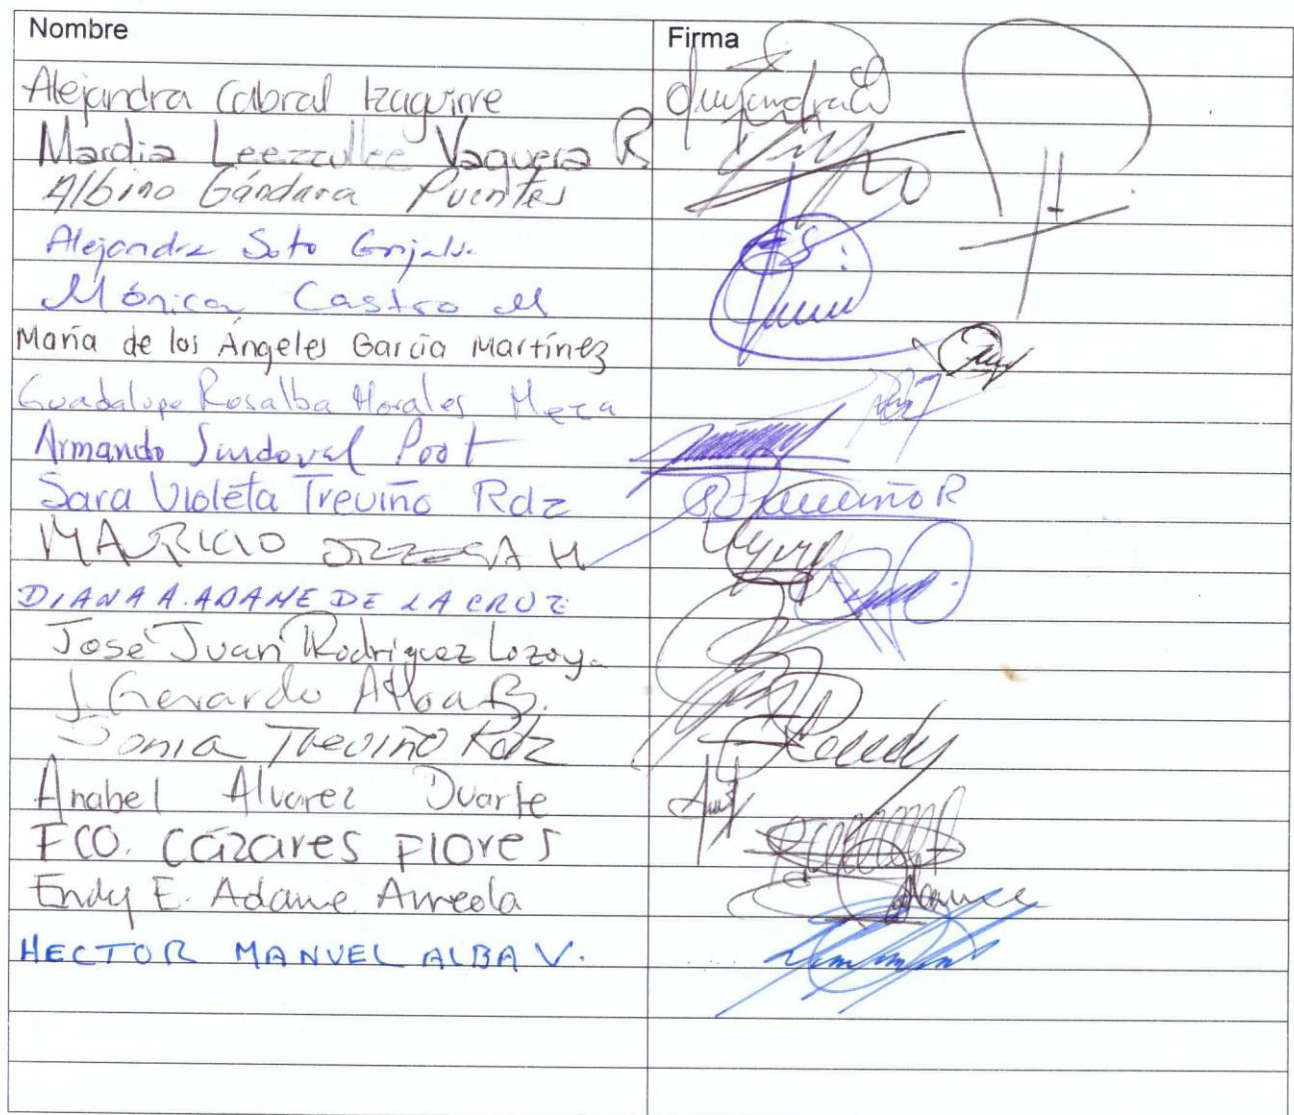 Nombre Firma
Alejandra Cabral Izaguirre
Mardia Leezzullee Vaquera R
Albino Gándara Puentes
Alejandra Soto Grijalv.
Mónica Castro M
María de los Ángeles García Martínez
Guadalupe Rosalba Morales Meza
Armando Sandoval Poot
Sara Violeta Treviño Rdz Treviño R
MAURICIO ORTEGA H
DIANA A. ADAME DE LA CRUZ
José Juan Rodriguez Lozoya
J. Gerardo Alba B.
Sonia Treviño Rdz
Anabel Alvarez Duarte
FCO. Cázares Flores
Endy E. Adame Arreola
HECTOR MANUEL ALBA V.